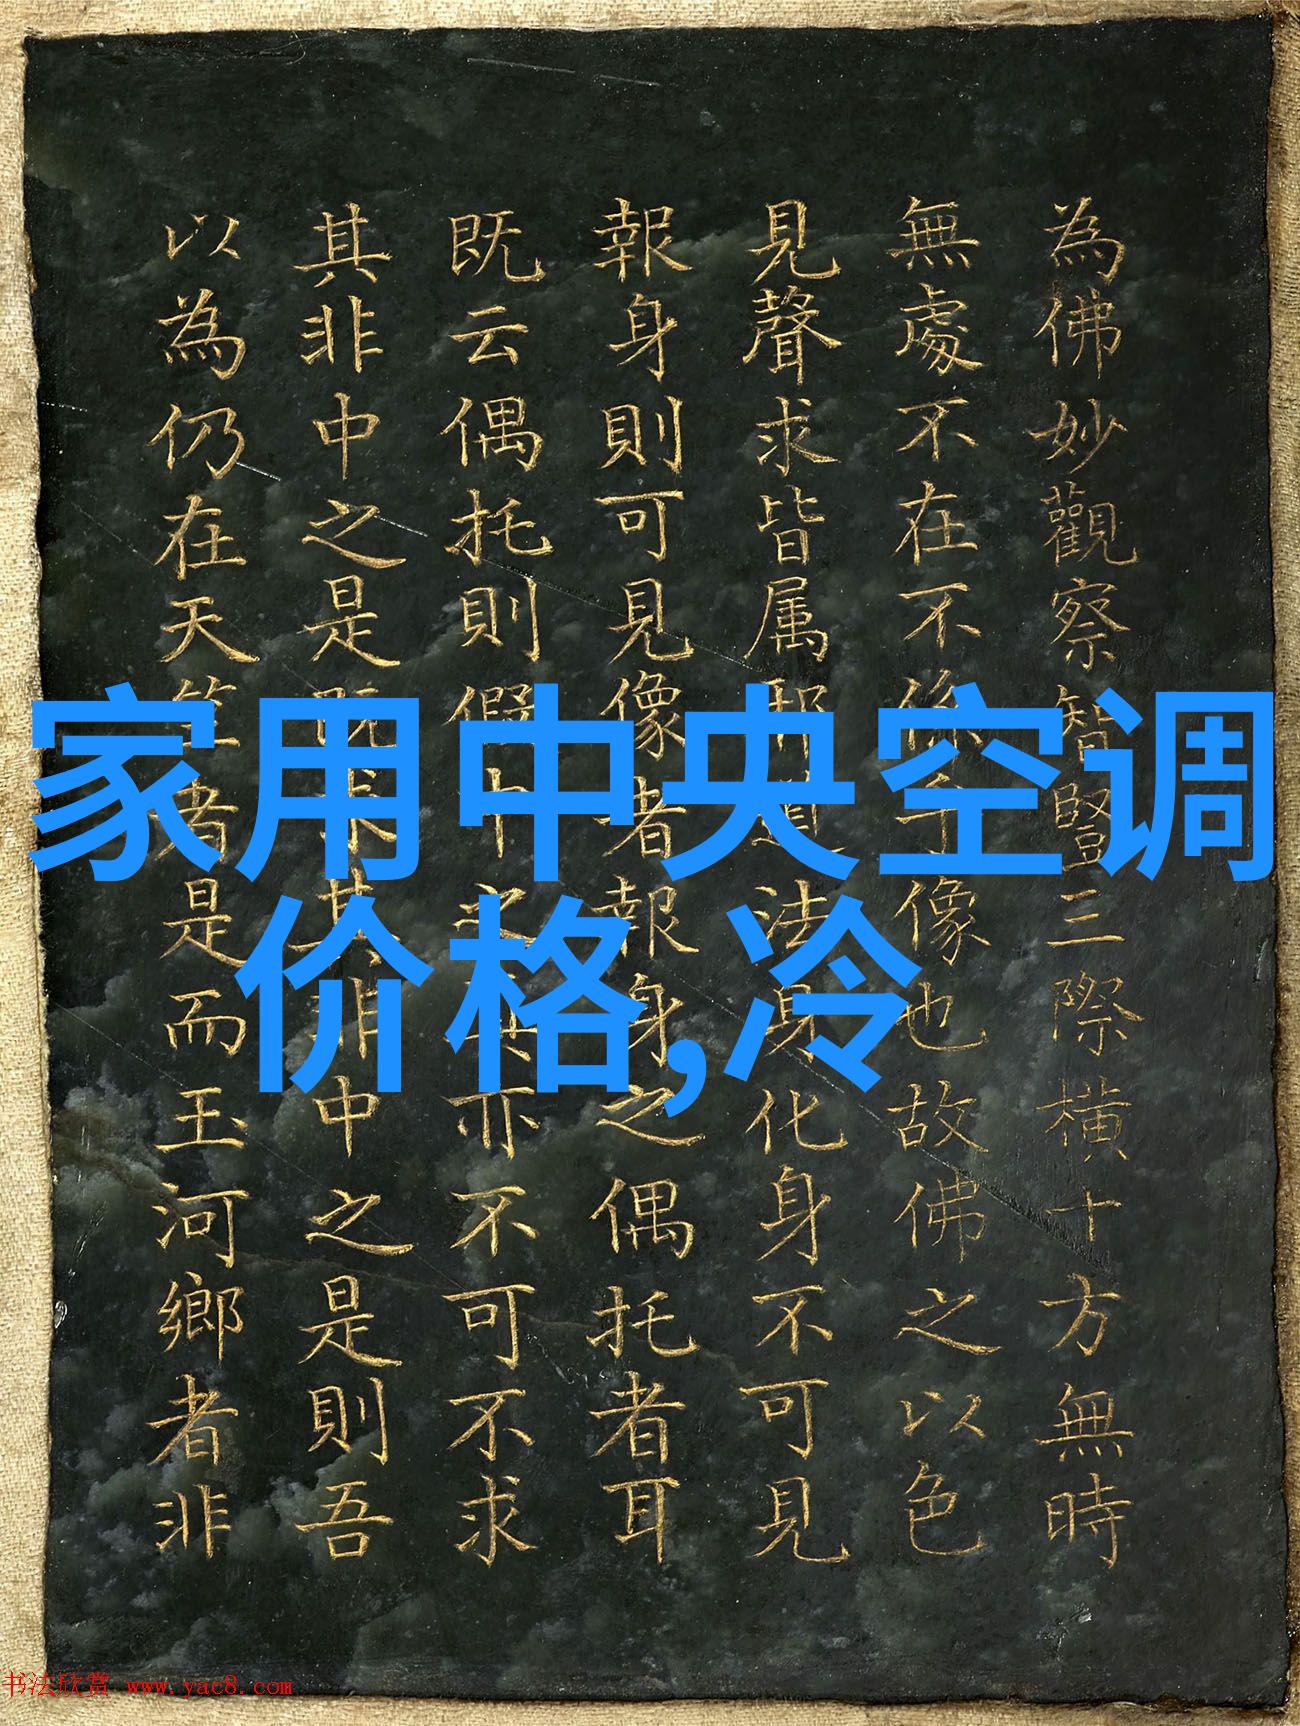 為佛妙觀察智豎三際橫十方無時
無處不在不係像也故佛之以色
見聲求皆属邪道法身化身不可見
報身則可見像者報身之偶托者耳
既云偶托則假中之亦不可不求
其非中之是既求其非中之是則吾
以為仍在天竺者是而玉河鄉者非
家用中央空调
价格,冷
书法欣赏 www.yac8.com